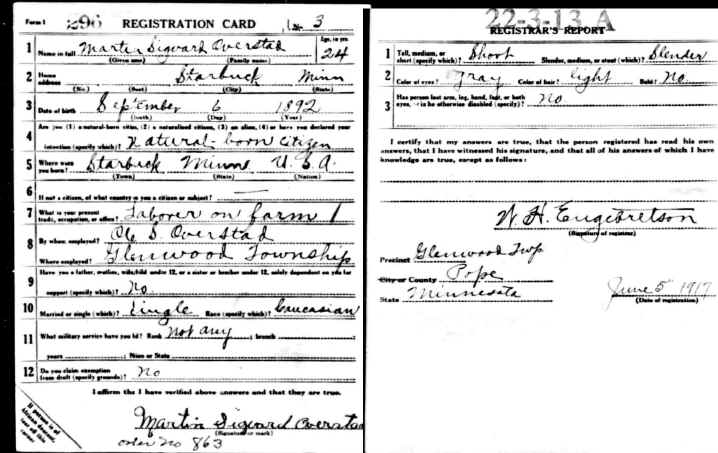 Form 1 290 REGISTRATION CARD No. 3
1 Name in full Martin Sigvard Overstad Age, in yrs 24
(Given name) (Family name)
2 Home address Starbuck Minn
(No.) (Street) (City) (State)
3 Date of birth September 6 1892
(Month) (Day) (Year)
4 Are you (1) a natural-born citizen, (2) a naturalized citizen, (3) an alien, (4) or have you declared your
intention (specify which)? Natural-born citizen
5 Where were you born? Starbuck Minn U.S.A.
(Town) (State) (Nation)
6 If not a citizen, of what country are you a citizen or subject?
7 What is your present trade, occupation, or office? Laborer on farm 1
8 By whom employed? Ole S. Overstad
Where employed? Glenwood Township
9 Have you a father, mother, wife, child under 12, or a sister or brother under 12, solely dependent on you for
support (specify which)? No
10 Married or single (which)? Single Race (specify which)? Caucasian
11 What military service have you had? Rank Not any ; branch ;
years ; Nation or State
12 Do you claim exemption from draft (specify grounds)? No
I affirm that I have verified above answers and that they are true.
Martin Sigvard Overstad
(Signature or mark)
order no 863
If person is of African descent, tear off this corner
22-3-13 A
REGISTRAR'S REPORT
1 Tall, medium, or short (specify which)? Short Slender, medium, or stout (which)? Slender
2 Color of eyes? Gray Color of hair? light Bald? No
3 Has person lost arm, leg, hand, foot, or both
eyes, or is he otherwise disabled (specify)? No
I certify that my answers are true, that the person registered has read his own
answers, that I have witnessed his signature, and that all of his answers of which I have
knowledge are true, except as follows:
W. H. Engebretson
(Signature of registrar)
Precinct Glenwood Twp
City or County Pope
State Minnesota June 5 1917
(Date of registration)